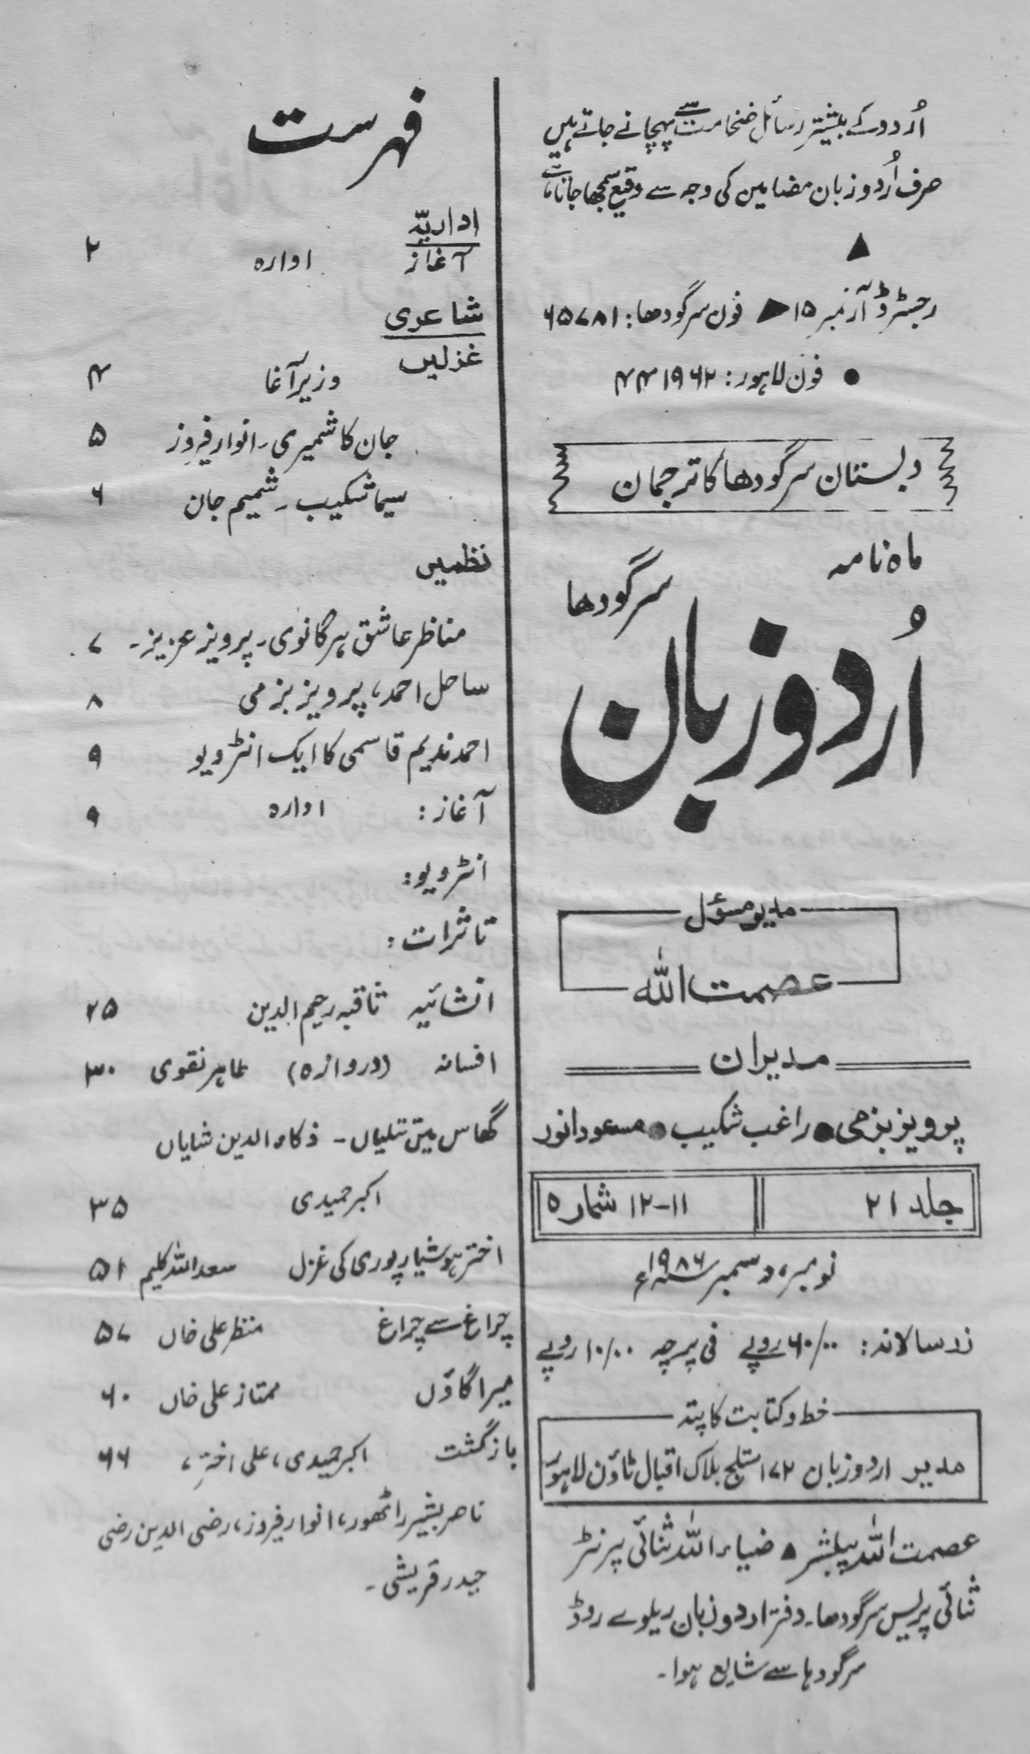 اُردو کے بیشتر رسائل ضخامت سے پہچانے جاتے ہیں
صرف اُردو زبان مضامین کی وجہ سے وقیع سمجھا جاتا ہے
رجسٹرڈ آر نمبر ۱۵ ◀ فون سرگودھا: ۶۵۷۸۱
● فون لاہور: ۴۴۱۹۶۲
دبستان سرگودھا کا ترجمان
ماہ نامہ
سرگودھا
اُردو زبان
مدیر مسؤل
عصمت اللہ
مدیران
پرویز بزمی ● راغب شکیب ● مسعود انور
جلد ۲۱ ۱۱-۱۲ شماره
نومبر، دسمبر ۱۹۸۶ء
زر سالانہ: ۶۰/۰۰ روپے فی پرچہ ۱۰/۰۰ روپے
خط و کتابت کا پتہ
مدیر اردو زبان ۱۷۲ ستلج بلاک اقبال ٹاؤن لاہور
عصمت اللہ پبلشر ▲ ضیاء اللہ ثنائی پرنٹر
ثنائی پریس سرگودھا۔ دفتر اردو زبان ریلوے روڈ
سرگودہا سے شایع ہوا۔
فہرست
اداریہّ
آغاز ادارہ ۲
شاعری
غزلیں
وزیر آغا ۴
جان کاشمیری۔ انوار فیروز ۵
سیما شکیب۔ شمیم جان ۶
نظمیں
مناظر عاشق ہرگانوی۔ پرویز عزیز۔ ۷
ساحل احمد، پرویز بزمی ۸
احمد ندیم قاسمی کا ایک انٹرویو ۹
آغاز: ادارہ ۹
انٹرویو:
تاثرات:
انشائیہ ثاقبہ رحیم الدین ۲۵
افسانہ (دروازہ) طاہر نقوی ۳۰
گھاس میں تتلیاں - ذکاء الدین شایاں
اکبر حمیدی ۳۵
اختر ہوشیارپوری کی غزل سعد اللہ کلیم ۵۱
چراغ سے چراغ منظر علی خاں ۵۷
میرا گاؤں ممتاز علی خاں ۶۰
بازگشت اکبر حمیدی، علی اختر، ۶۶
ناصر بشیر راٹھور، انوار فیروز، رضی الدین رضی
حیدر قریشی۔